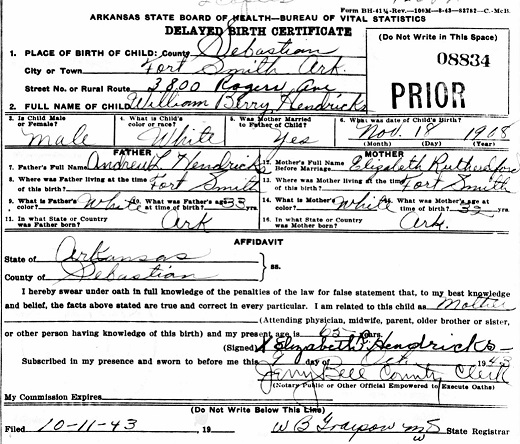 Form BH-41¼-Rev.-100M-8-43-52762-C.-McB.
ARKANSAS STATE BOARD OF HEALTH—BUREAU OF VITAL STATISTICS
DELAYED BIRTH CERTIFICATE
(Do Not Write in This Space)
08834
PRIOR
1. PLACE OF BIRTH OF CHILD: County Sebastian
City or Town Fort Smith Ark.
Street No. or Rural Route 3800 Rogers Ave
2. FULL NAME OF CHILD William Berry Hendricks
3. Is Child Male or Female? Male
4. What is Child's color or race? White
5. Was Mother Married to Father of Child? Yes
6. What was date of Child's Birth? Nov. 18 1908
(Month) (Day) (Year)
FATHER
MOTHER
7. Father's Full Name Andrew L Hendricks
12. Mother's Full Name Before Marriage Elizabeth Rutherford
8. Where was Father living at the time of this birth? Fort Smith
13. Where was Mother living at the time of this birth? Fort Smith
9. What is Father's color? White
10. What was Father's age at time of birth? 33 yrs.
14. What is Mother's color? White
15. What was Mother's age at time of birth? 32 yrs.
11. In what State or Country was Father born? Ark
16. In what State or Country was Mother born? Ark.
AFFIDAVIT
State of Arkansas
County of Sebastian
} ss.
I hereby swear under oath in full knowledge of the penalties of the law for false statement that, to my best knowledge
and belief, the facts above stated are true and correct in every particular. I am related to this child as Mother
(Attending physician, midwife, parent, older brother or sister,
or other person having knowledge of this birth) and my present age is Years.
(Signed) Elizabeth Hendricks
Subscribed in my presence and sworn to before me this 7 day of Oct., 1943
Jerry Bell County Clerk
(Notary Public or Other Official Empowered to Execute Oaths)
My Commission Expires
(Do Not Write Below This Line)
Filed 10-11-43, 19 W B Grayson MD State Registrar